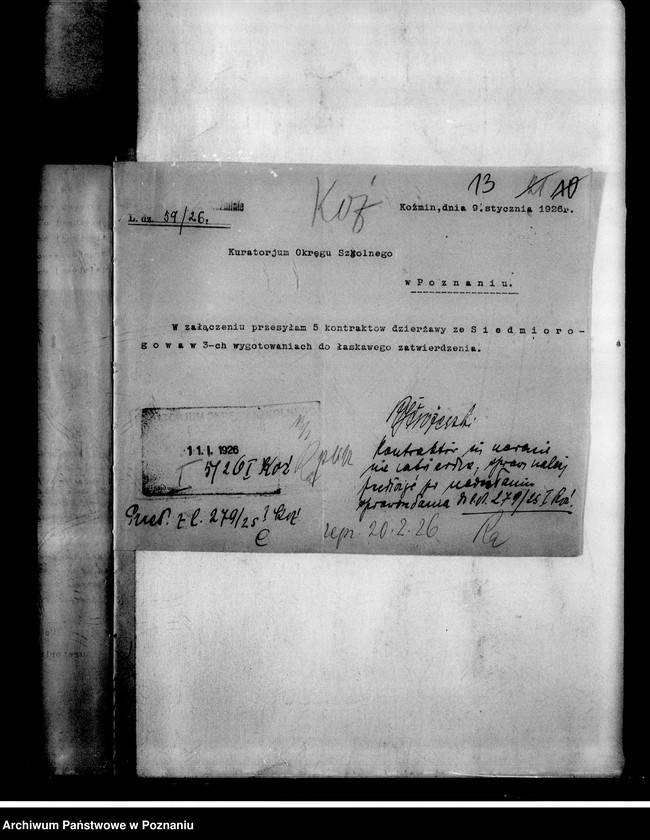 13
Koź
Koźmin, dnia 9. stycznia 1926r.
L. dz. 59/26.
Kuratorjum Okręgu Szkolnego
w P o z n a n i u.
W załączeniu przesyłam 5 kontraktow dzierżawy ze S i e d m i o r o -
g o w a w 3-ch wygotowaniach do łaskawego zatwierdzenia.
11. I. 1926
I 5/26 I Koź
Kontraktów się narazie
nie zatwierdza, sprawę należy
przedłożyć po nadesłaniu
sprawozdania do l.dz. 279/25 I Koź.
z l. 279/25 I Koź
repr. 20.2.26
Archiwum Państwowe w Poznaniu